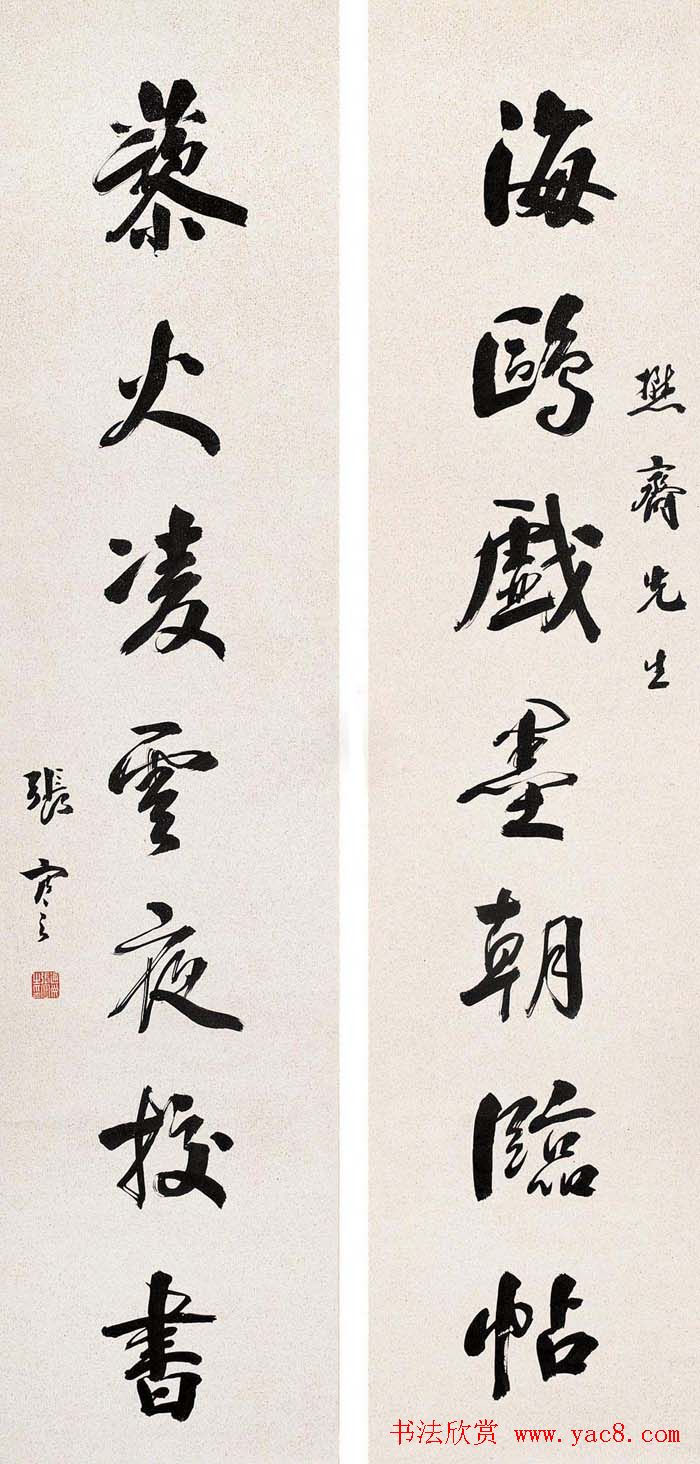 海鷗戲墨朝臨帖
懋齋先生
藜火凌雲夜挍書
張寒之
书法欣赏 www.yac8.com